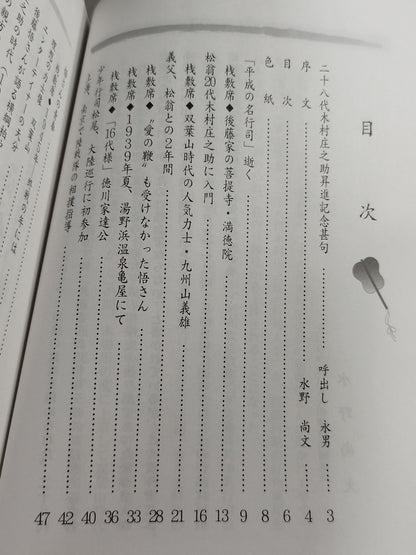 目次
二十八代木村庄之助昇進記念甚句……呼出し 永男 3
序文……水野 尚文 4
目次……6
色紙……8
「平成の名行司」逝く……9
桟敷席◆後藤家の菩提寺・満徳院……13
松翁20代木村庄之助に入門……16
桟敷席◆双葉山時代の人気力士・九州山義雄……21
義父、松翁との2年間……28
桟敷席◆“愛の鞭”も受けなかった悟さん……33
桟敷席◆1939年夏、湯野浜温泉亀屋にて……36
桟敷席◆「16代様」徳川家達公……40
少年行司松尾、大陸巡行に初参加……42
上海、南京で陸戦隊の相撲指導……47